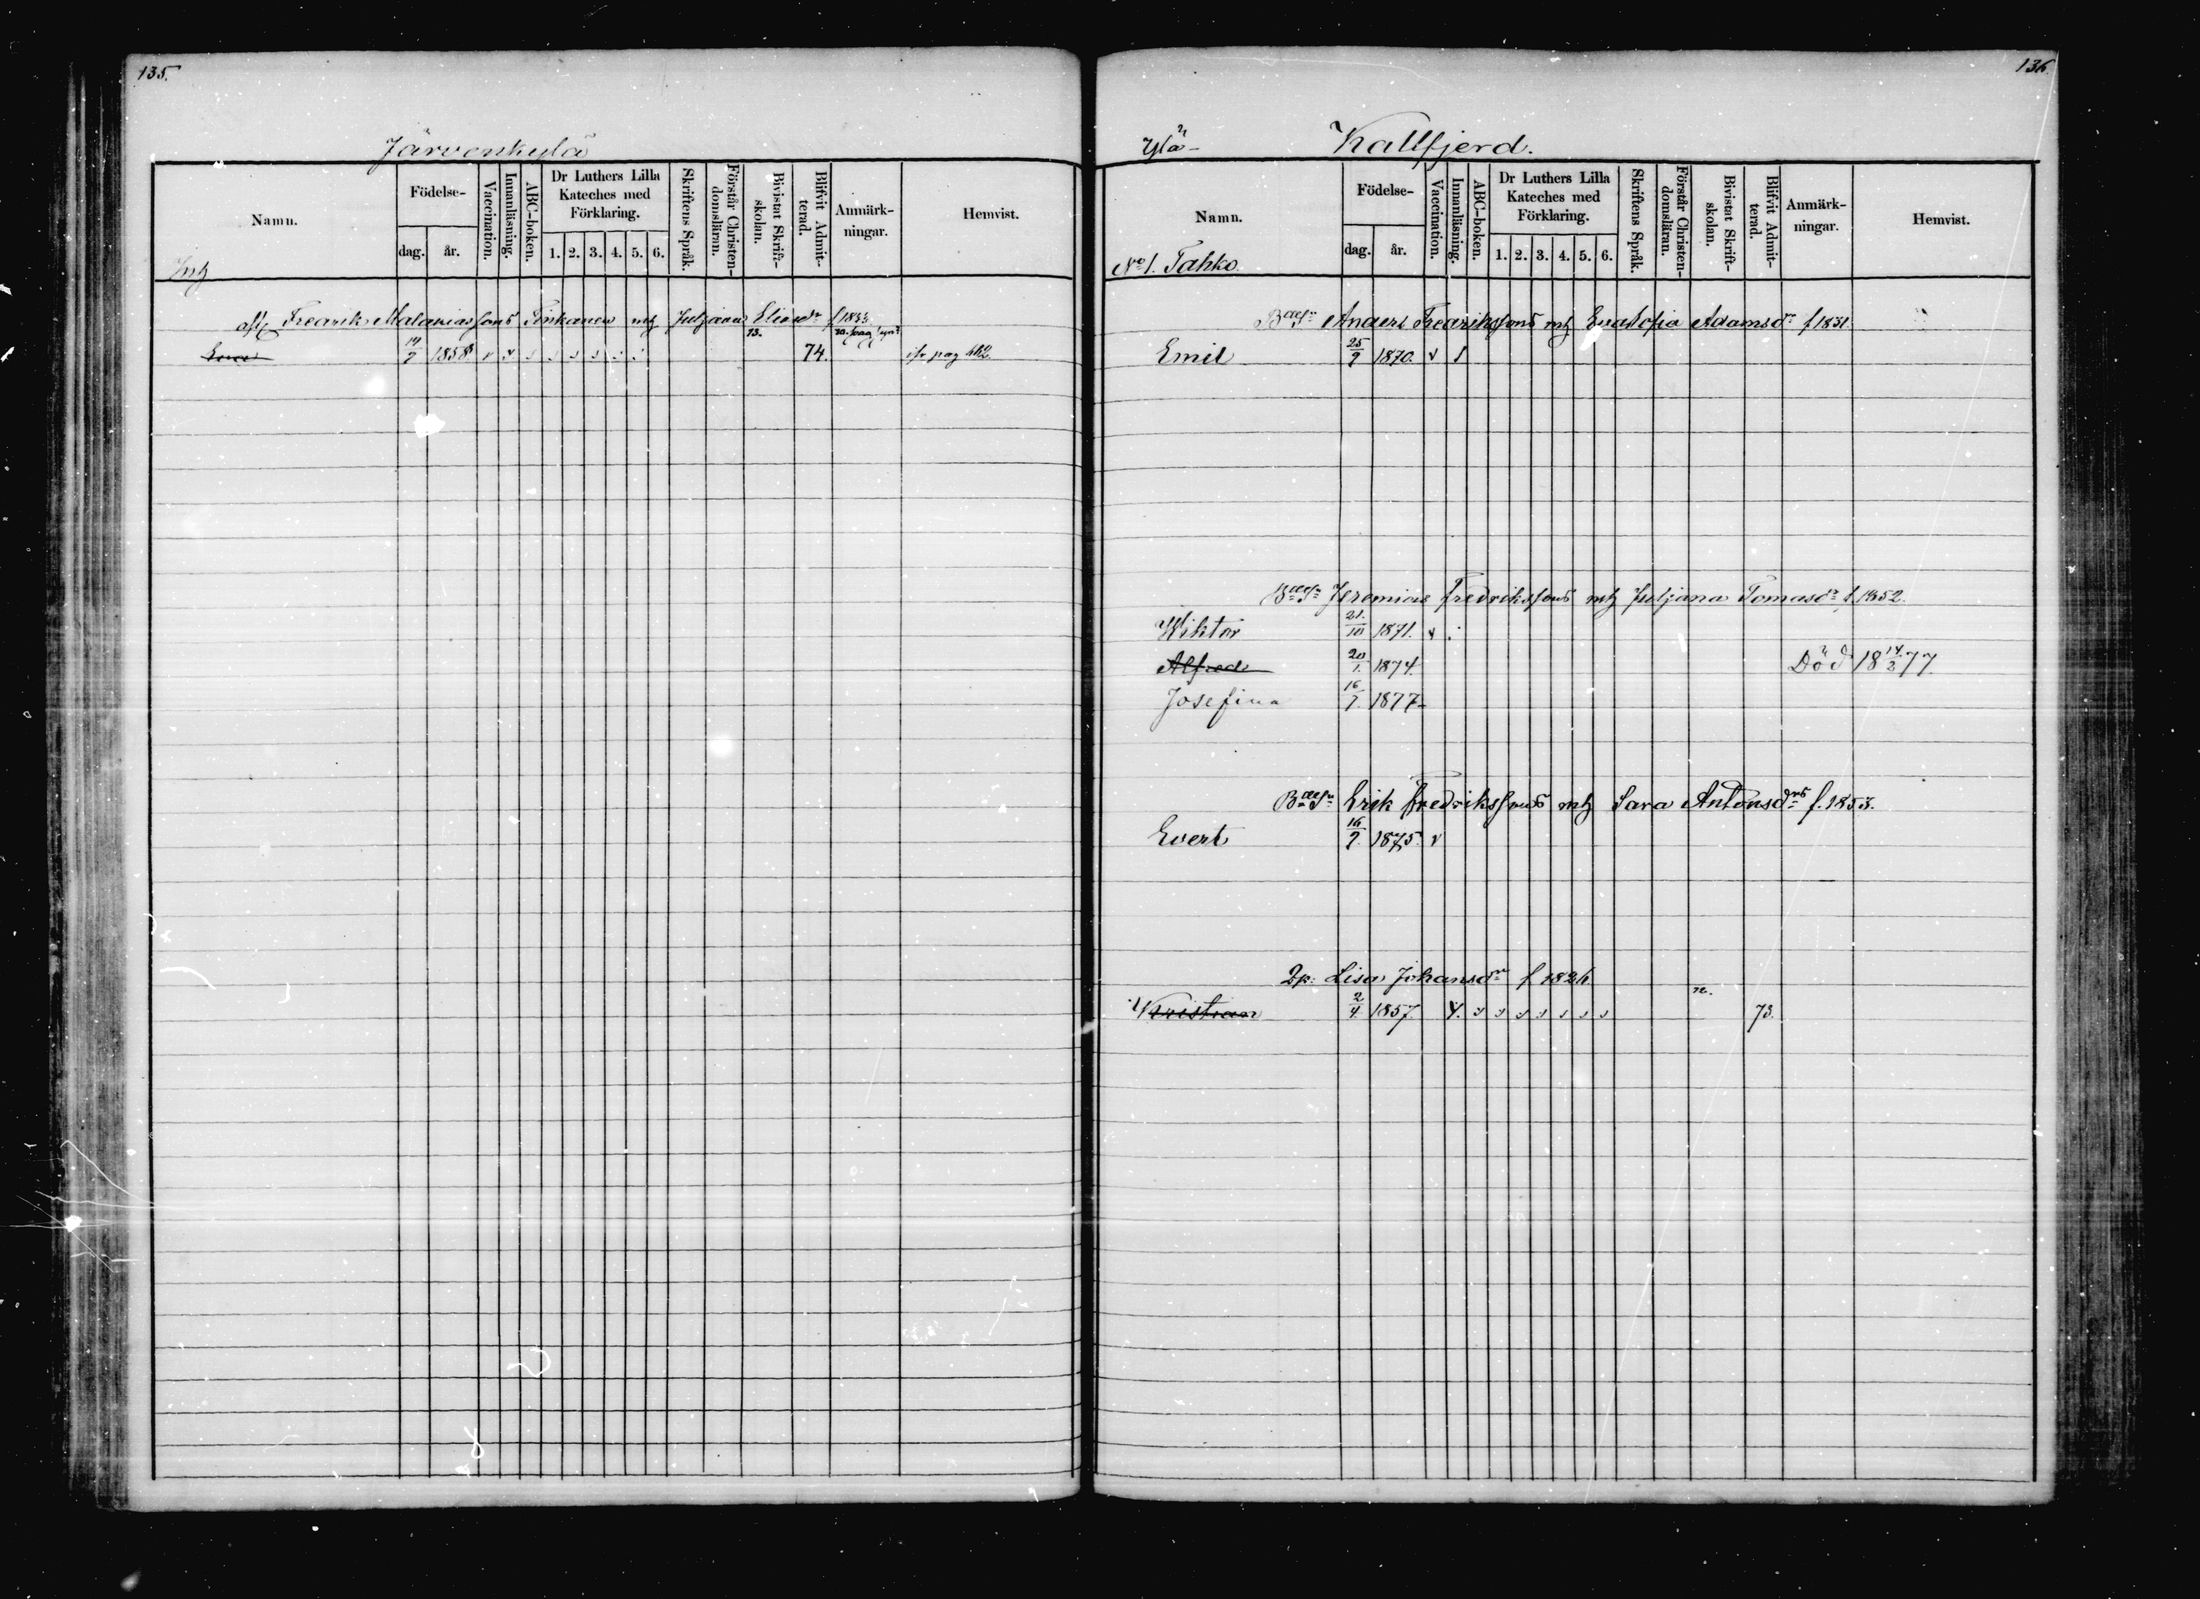 135.
Järvenkylä
Namn.
Födelse-
dag. år.
Vaccination.
Innanläsning.
ABC-boken.
Dr Luthers Lilla Kateches med Förklaring.
1. 2. 3. 4. 5. 6.
Skriftens Språk.
Förstår Christendomsläran.
Bivistat Skriftskolan.
Blifvit Admitterad.
Anmärkningar.
Hemvist.
Inh
Fredrik Malakiassons mh Juljana f 1833
Eva 14/7 1858 73. 74. pag
136.
Ylä- Kallfjerd.
Namn.
Födelse-
dag. år.
Vaccination.
Innanläsning.
ABC-boken.
Dr Luthers Lilla Kateches med Förklaring.
1. 2. 3. 4. 5. 6.
Skriftens Språk.
Förstår Christendomsläran.
Bivistat Skriftskolan.
Blifvit Admitterad.
Anmärkningar.
Hemvist.
No 1. Tahko.
Anders Fredrikssons mh Eva Sofia Adamsdr f 1831.
Emil 25/9 1870. v
Jeremias Fredrikssons mh Juljana Tomasdr f 1852.
Wiktor 21/10 1871. v
Alfred 20/1. 1874. Död 18 14/3 77.
Josefina 16/7. 1877
Erik Fredrikssons mh Sara Antonsdrs f. 1853.
Evert 16/9. 1875. v
Lisa Johansdr f 1826.
Kristian 2/4. 1857. 72. 73.